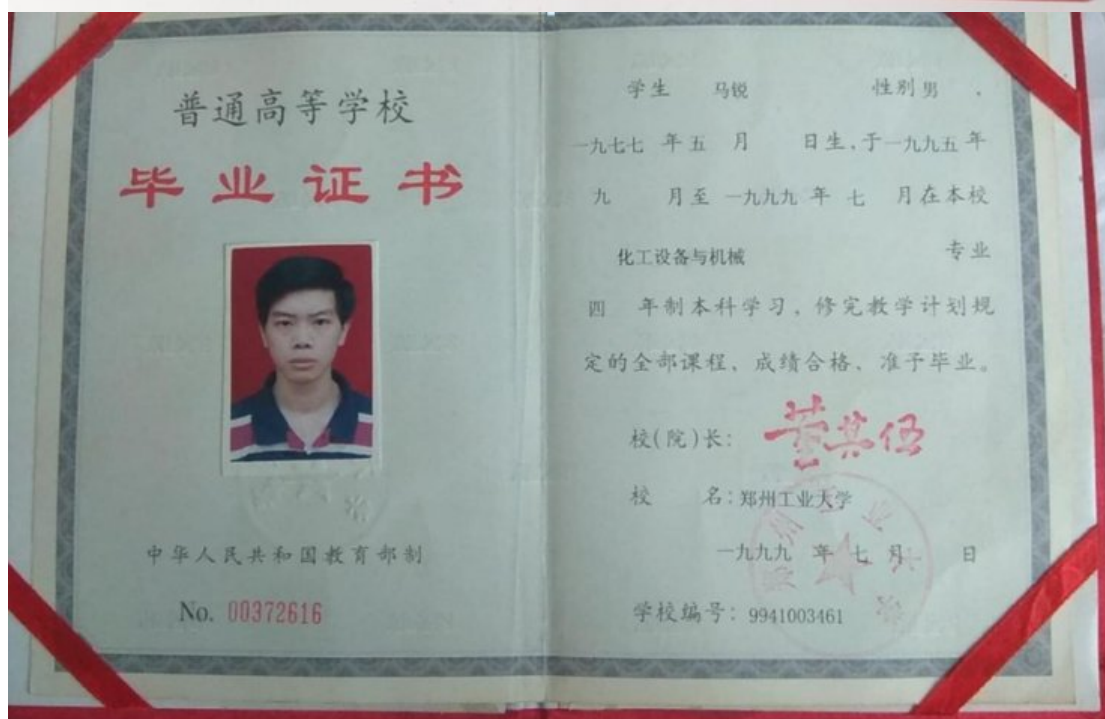 普通高等学校
毕业证书
中华人民共和国教育部制
No. 00372616
学生 马锐 性别 男 .
一九七七 年 五 月 日生,于 一九九五 年
九 月至 一九九九 年 七 月在本校
化工设备与机械 专业
四 年制本科学习,修完教学计划规
定的全部课程、成绩合格、准予毕业。
校(院)长: 董其伍
校 名: 郑州工业大学
一九九九 年 七 月 日
学校编号: 9941003461
郑州工业大学